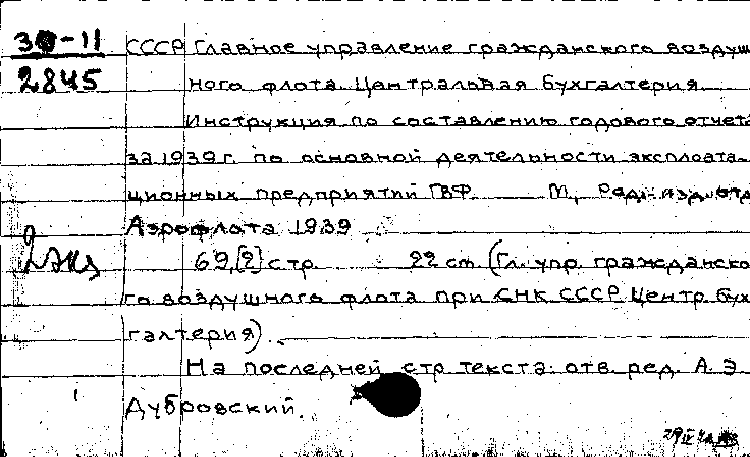 30-11
2845
СССР Главное управление гражданского воздуш
ного флота. Центральная бухгалтерия.
Инструкция по составлению годового отчета
за 1939 г. по основной деятельности эксплоата-
ционных предприятий ГВФ. М., Ред.-изд. отд
Аэрофлота 1939
2 экз
69,[2] стр. 22 cm. (Гл. упр. гражданско
го воздушного флота при СНК СССР Центр бух
галтерия).
На последней стр. текста: отв. ред. А. Э.
Дубровский.